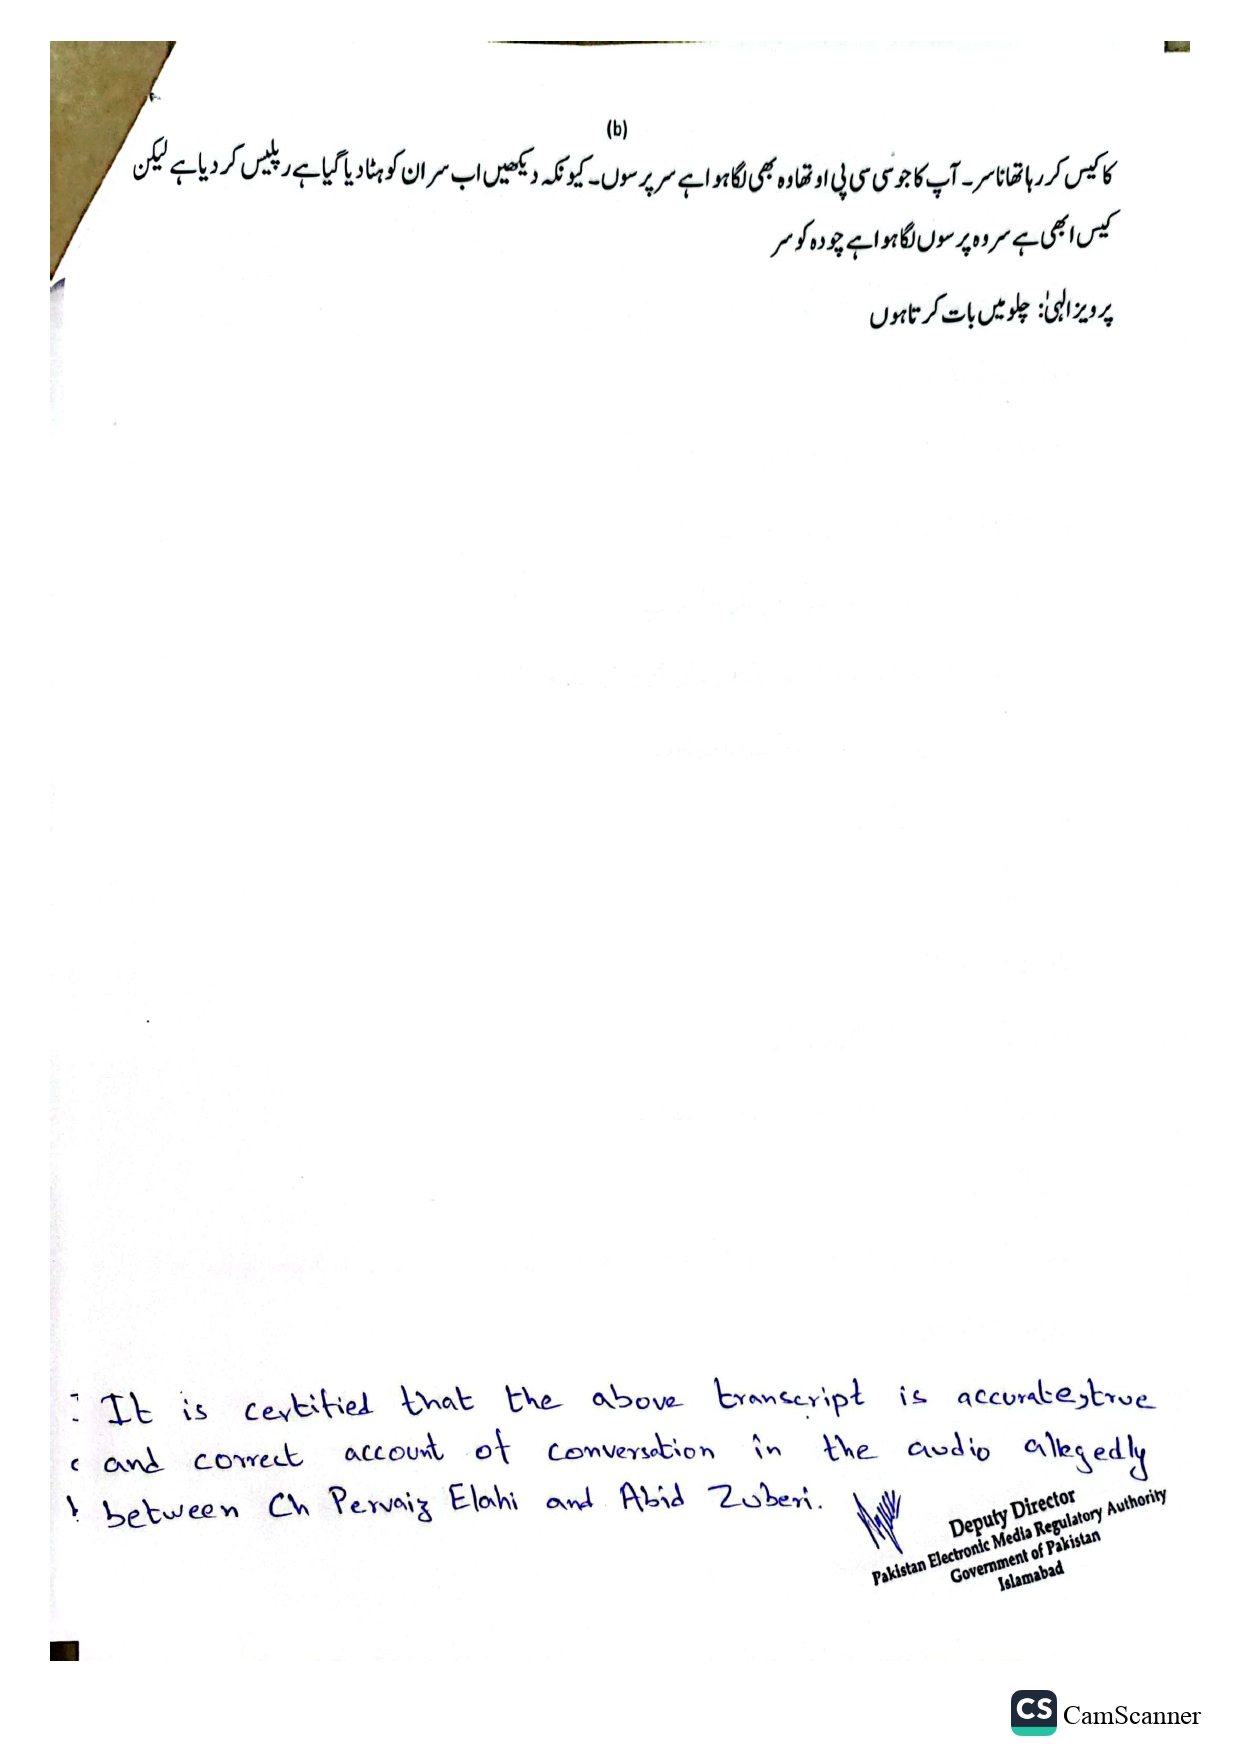 (b)
کا کیس کر رہا تھا نا سر۔ آپ کا جو سی سی پی او تھا وہ بھی لگا ہوا ہے سر پرسوں۔ کیونکہ دیکھیں اب سر ان کو ہٹا دیا گیا ہے رپلیس کر دیا ہے لیکن
کیس ابھی ہے سر وہ پرسوں لگا ہوا ہے چودہ کو سر
پرویز الہیٰ: چلو میں بات کرتا ہوں
It is certified that the above transcript is accurate, true
and correct account of conversation in the audio allegedly
between Ch Pervaiz Elahi and Abid Zuberi.
Deputy Director
Pakistan Electronic Media Regulatory Authority
Government of Pakistan
Islamabad
CS CamScanner